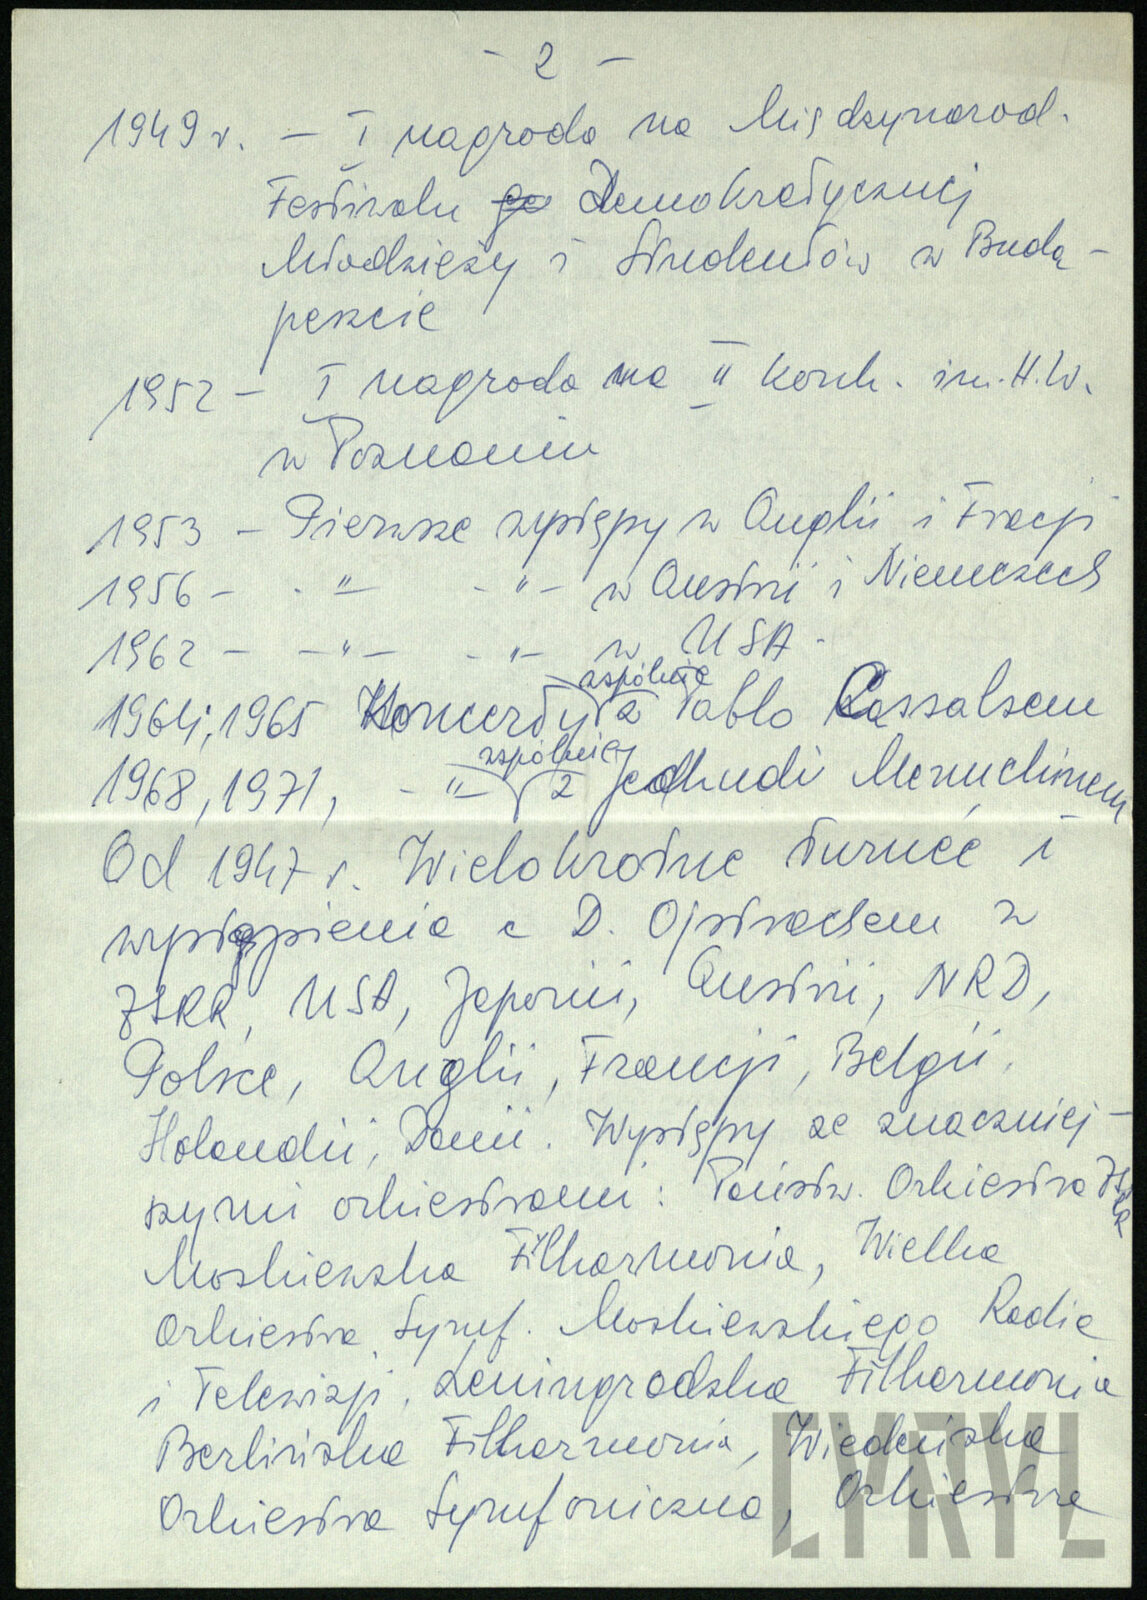 - 2 -
1949 r. - I nagroda na Międzynarod.
Festiwalu go Demokratycznej
Młodzieży i Studentów w Buda-
peszcie
1952 - I nagroda na II Konk. im. H.W.
w Poznaniu
1953 - Pierwsze występy w Anglii i Fracji
1956 - - " - - " - w Austrii i Niemczech
1962 - - " - - " - w USA.
wspólnie
1964; 1965 Koncerty z Pablo Cassalsem
wspólnie
1968, 1971, - " - z Jechudi Menuchinem
Od 1947 r. Wielokrotne turnée i
wystąpienia z D. Ojstrachem w
ZSRR, USA, Japonii, Austrii, NRD,
Polsce, Anglii, Francji, Belgii,
Holandii, Danii. Występy ze znaczniej-
szymi orkiestrami: Państw. Orkiestra ZSRR
Moskiewska Filharmonia, Wielka
Orkiestra Symf. Moskiewskiego Radia
i Telewizji, Leningradzka Filharmonia
Berlińska Filharmonia, Wiedeńska
Orkiestra Symfoniczna, Orkiestra
CYRYL